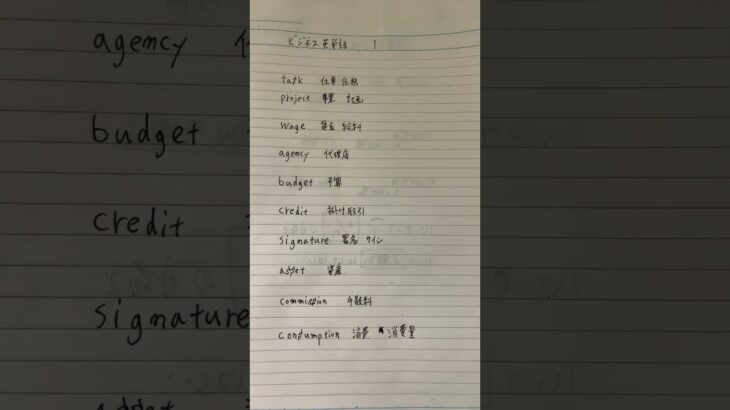 ビジネス英単語 1
task 仕事 任務
project 事業 計画
wage 賃金 給料
agency 代理店
budget 予算
credit 掛け取引
signature 署名 サイン
asset 資産
commission 手数料
consumption 消費 消費量